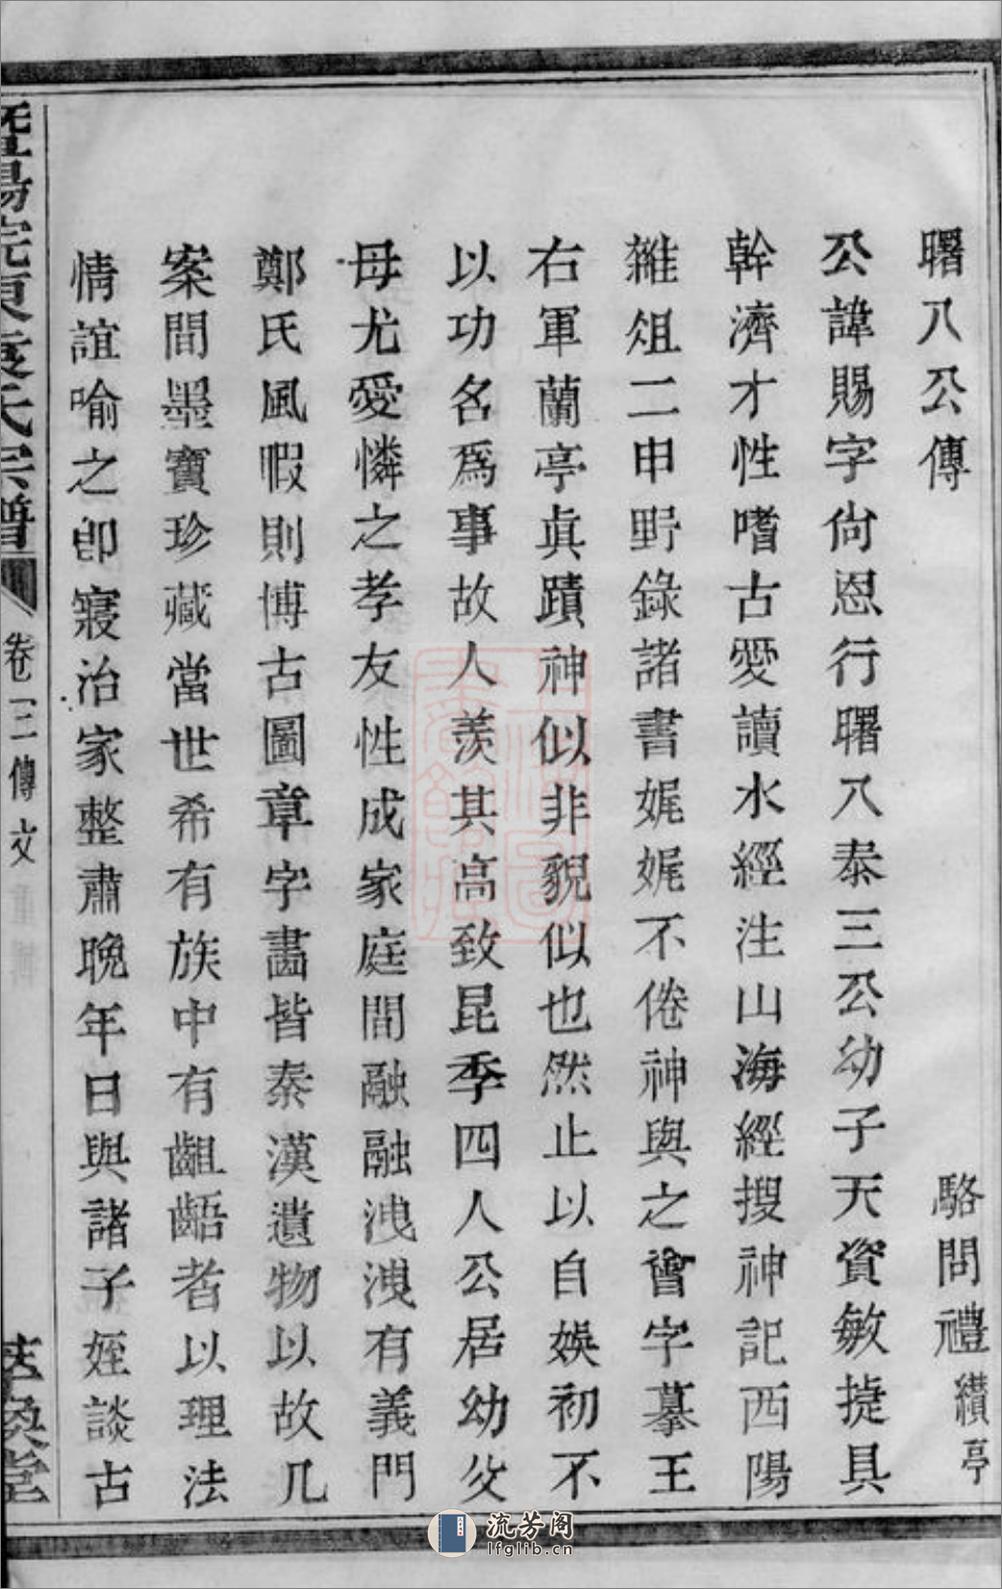 曙八公傳
駱問禮纘亭
公諱賜字尚恩行曙八泰三公幼子天資敏捷具
幹濟才性嗜古愛讀水經注山海經搜神記西陽
雜俎二申野錄諸書娓娓不倦神與之會字摹王
右軍蘭亭眞蹟神似非貌似也然止以自娛初不
以功名爲事故人羨其高致昆季四人公居幼父
母尤愛憐之孝友性成家庭間融融洩洩有義門
鄭氏風暇則博古圖章字畵皆秦漢遺物以故几
案間墨寶珍藏當世希有族中有齟齬者以理法
情誼喻之卽寢治家整肅晚年日與諸子姪談古
暨陽
東袁氏宗譜
卷一
二傳文
煥堂
流芳阁
lfglib.cn